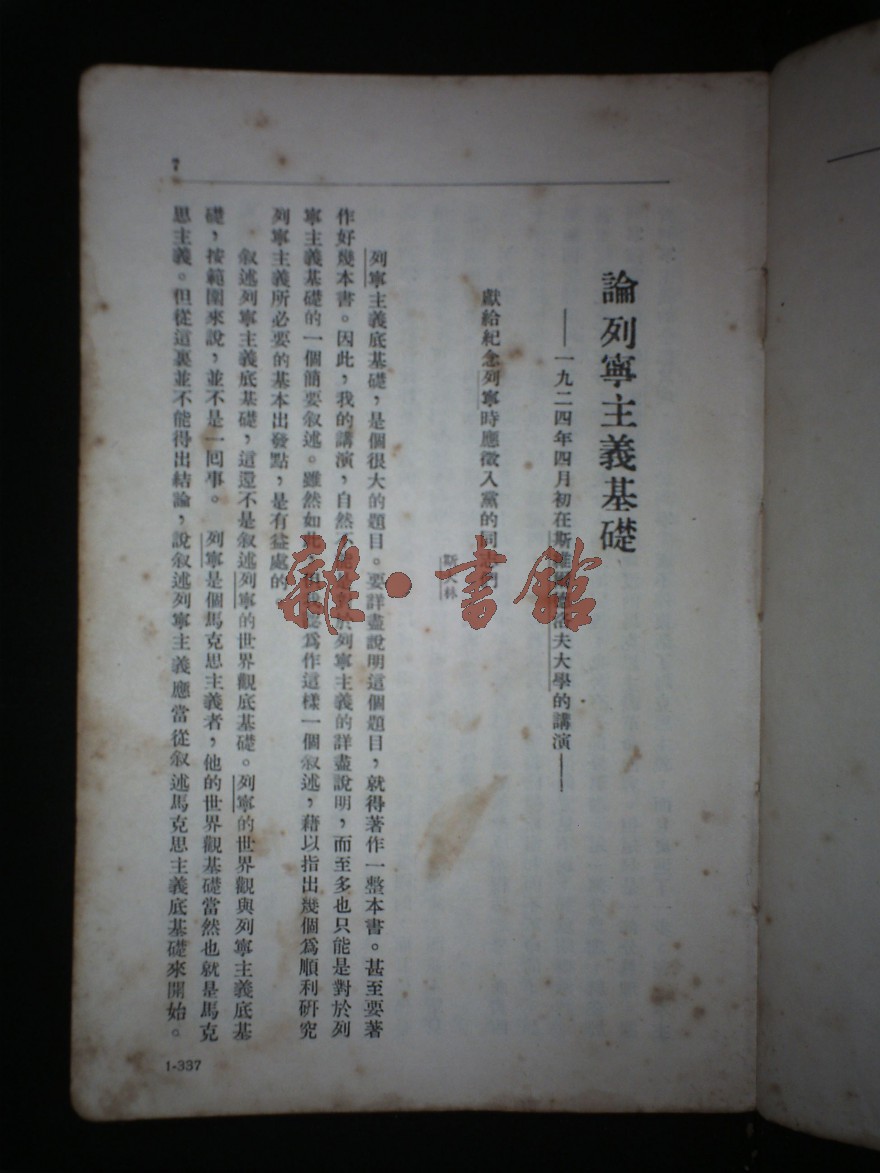 論列寧主義基礎
——一九二四年四月初在斯維爾德洛夫大學的講演——
獻給紀念列寧時應徵入黨的同志們
斯大林
列寧主義底基礎，是個很大的題目。要詳盡說明這個題目，就得著作一整本書。甚至要著
作好幾本書。因此，我的講演，自然不能是對於列寧主義的詳盡說明，而至多也只能是對於列
寧主義基礎的一個簡要敘述。雖然如此，但我認爲作這樣一個敘述，藉以指出幾個爲順利研究
列寧主義所必要的基本出發點，是有益處的。
敘述列寧主義底基礎，這還不是敘述列寧的世界觀底基礎。列寧的世界觀與列寧主義底基
礎，按範圍來說，並不是一回事。列寧是個馬克思主義者，他的世界觀基礎當然也就是馬克
思主義。但從這裏並不能得出結論，說敘述列寧主義應當從敘述馬克思主義底基礎來開始。
1-337
雜·書館